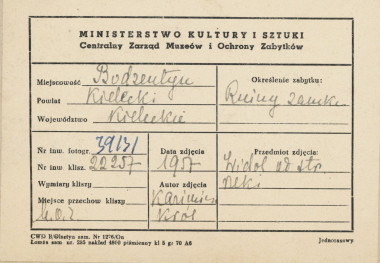 MINISTERSTWO KULTURY I SZTUKI
Centralny Zarząd Muzeów i Ochrony Zabytków
Miejscowość Bodzentyn
Powiat Kielecki
Województwo Kieleckie
Określenie zabytku:
Ruiny zamku
Nr inw. fotogr. 39131
Nr inw. klisz. 22257
Wymiary kliszy
Miejsce przechow kliszy
Data zdjęcia
1957
Autor zdjęcia
Kazimierz
Król
Przedmiot zdjęcia:
Widok od str.
rzeki
CWD R/Olsztyn zam. Nr 1276/On
Łomża sam. nr. 285 nakład 4800 piśmienny kl 5 gr 70 A6
Jednorazowy